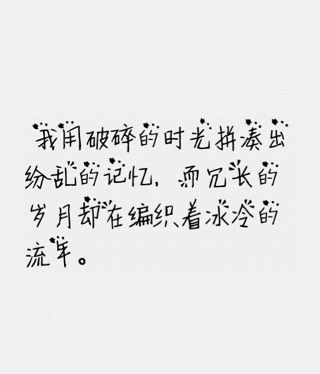 我用破碎的时光拼凑出
纷乱的记忆,而冗长的
岁月却在编织着冰冷的
流年。